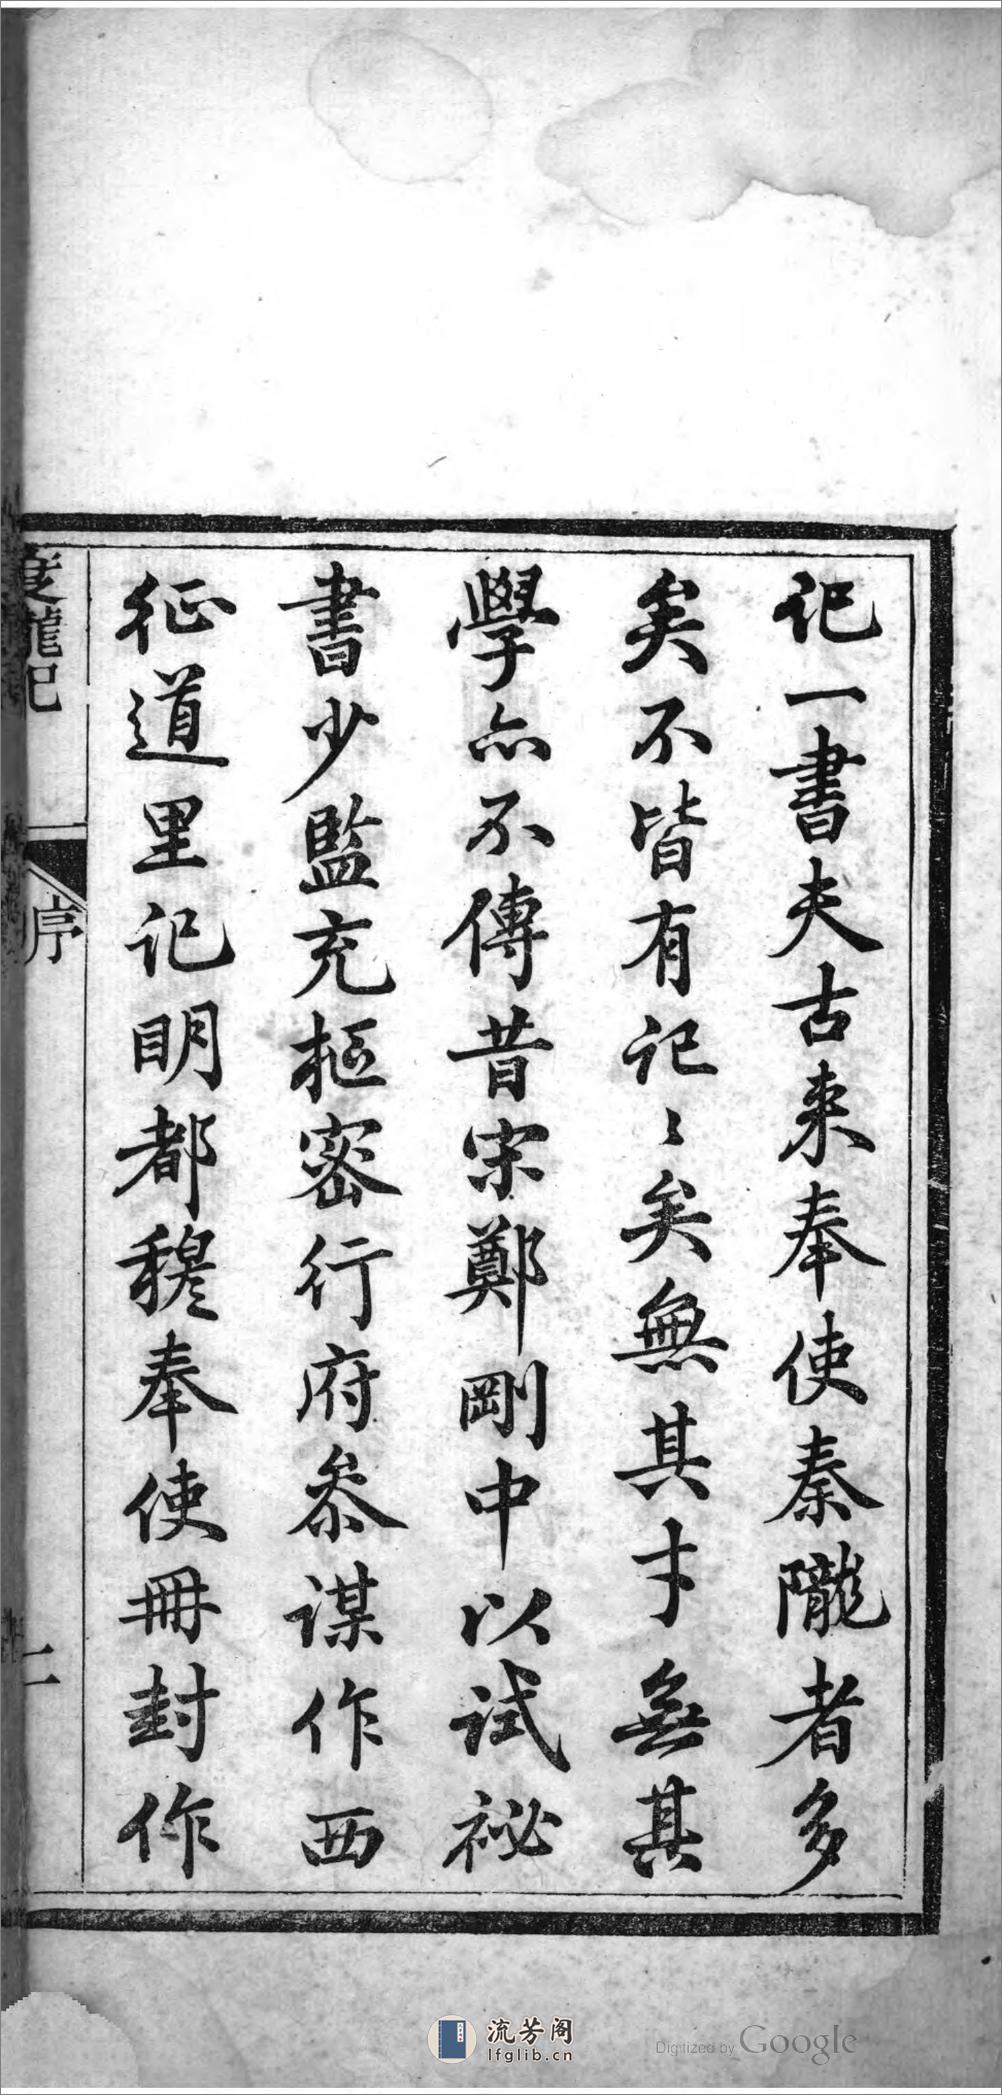 記一書夫古來奉使秦隴者多
矣不皆有記〻矣無其才無其
學亦不傳昔宋鄭剛中以試祕
書少監充樞密行府叅謀作西
征道里記明都穆奉使冊封作
度隴記
序
二
流芳阁
lfglib.cn
Digitized by Google